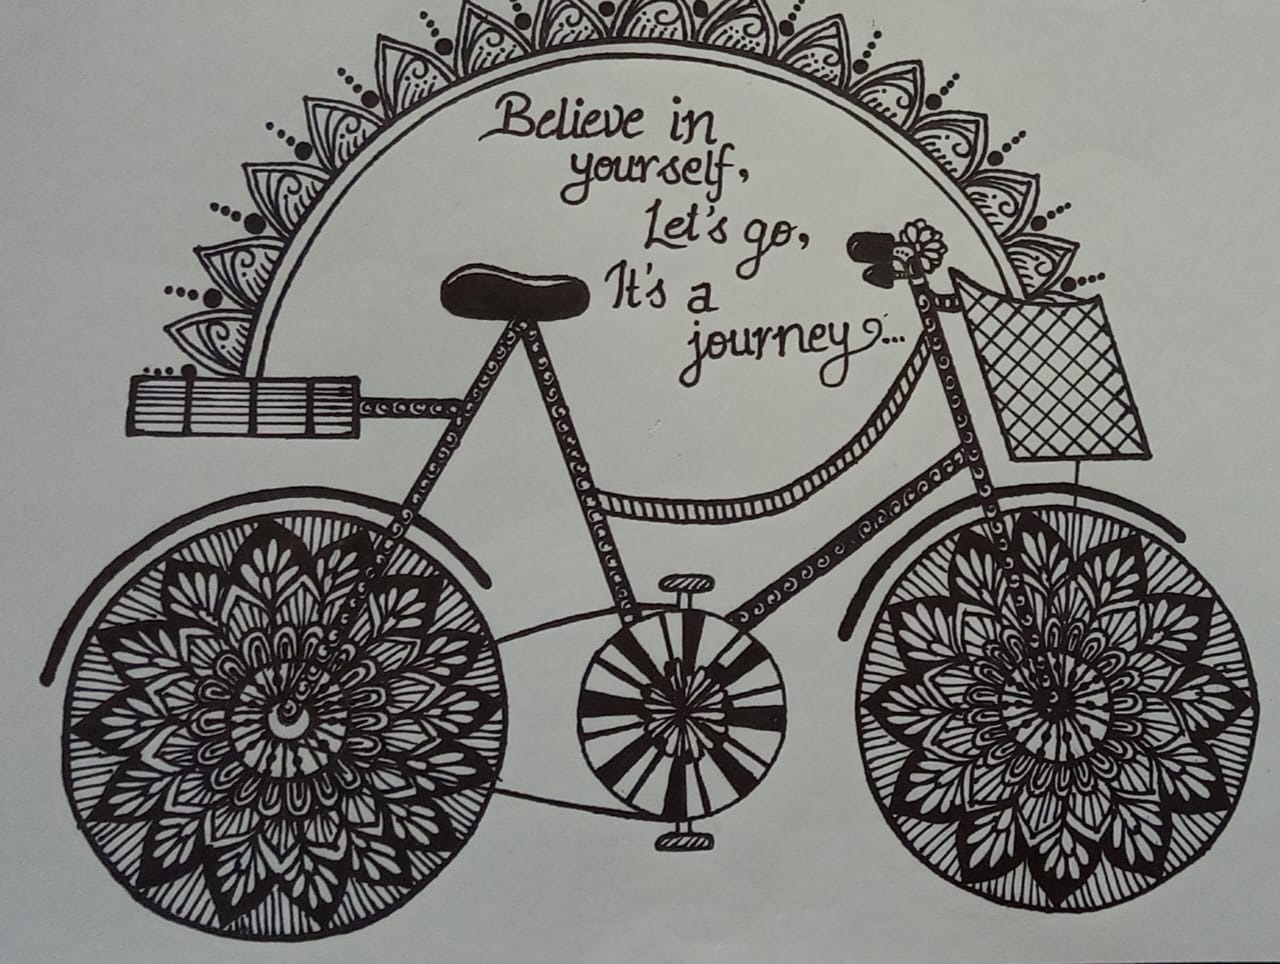 Believe in
yourself,
Let's go,
It's a
journey...